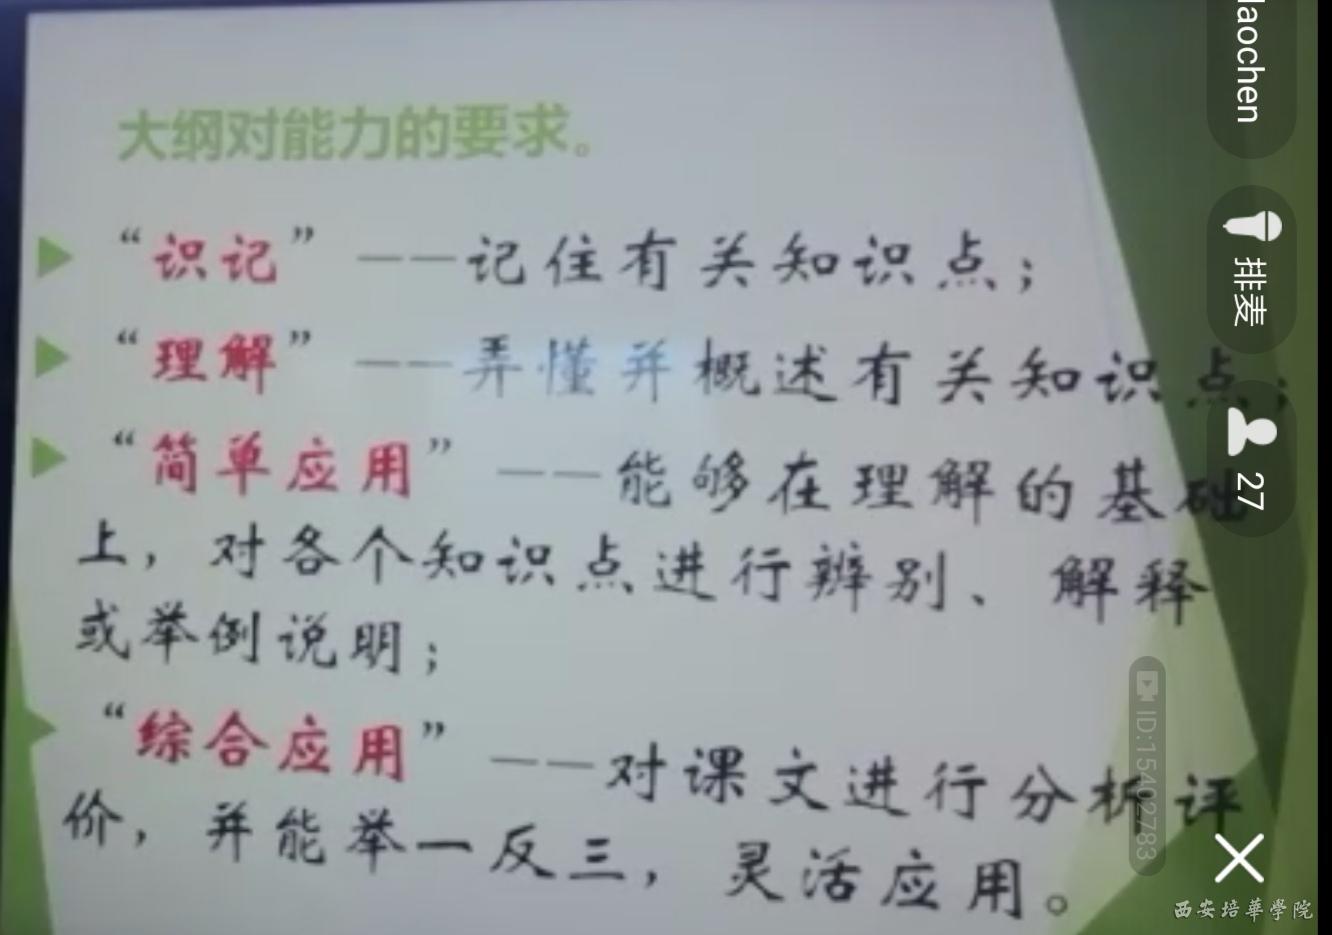 大纲对能力的要求。
“识记”——记住有关知识点；
“理解”——弄懂并概述有关知识点；
“简单应用”——能够在理解的基础
上，对各个知识点进行辨别、解释
或举例说明；
“综合应用”——对课文进行分析评
价，并能举一反三，灵活应用。
laochen
排麦
27
ID:15402783
西安培華學院